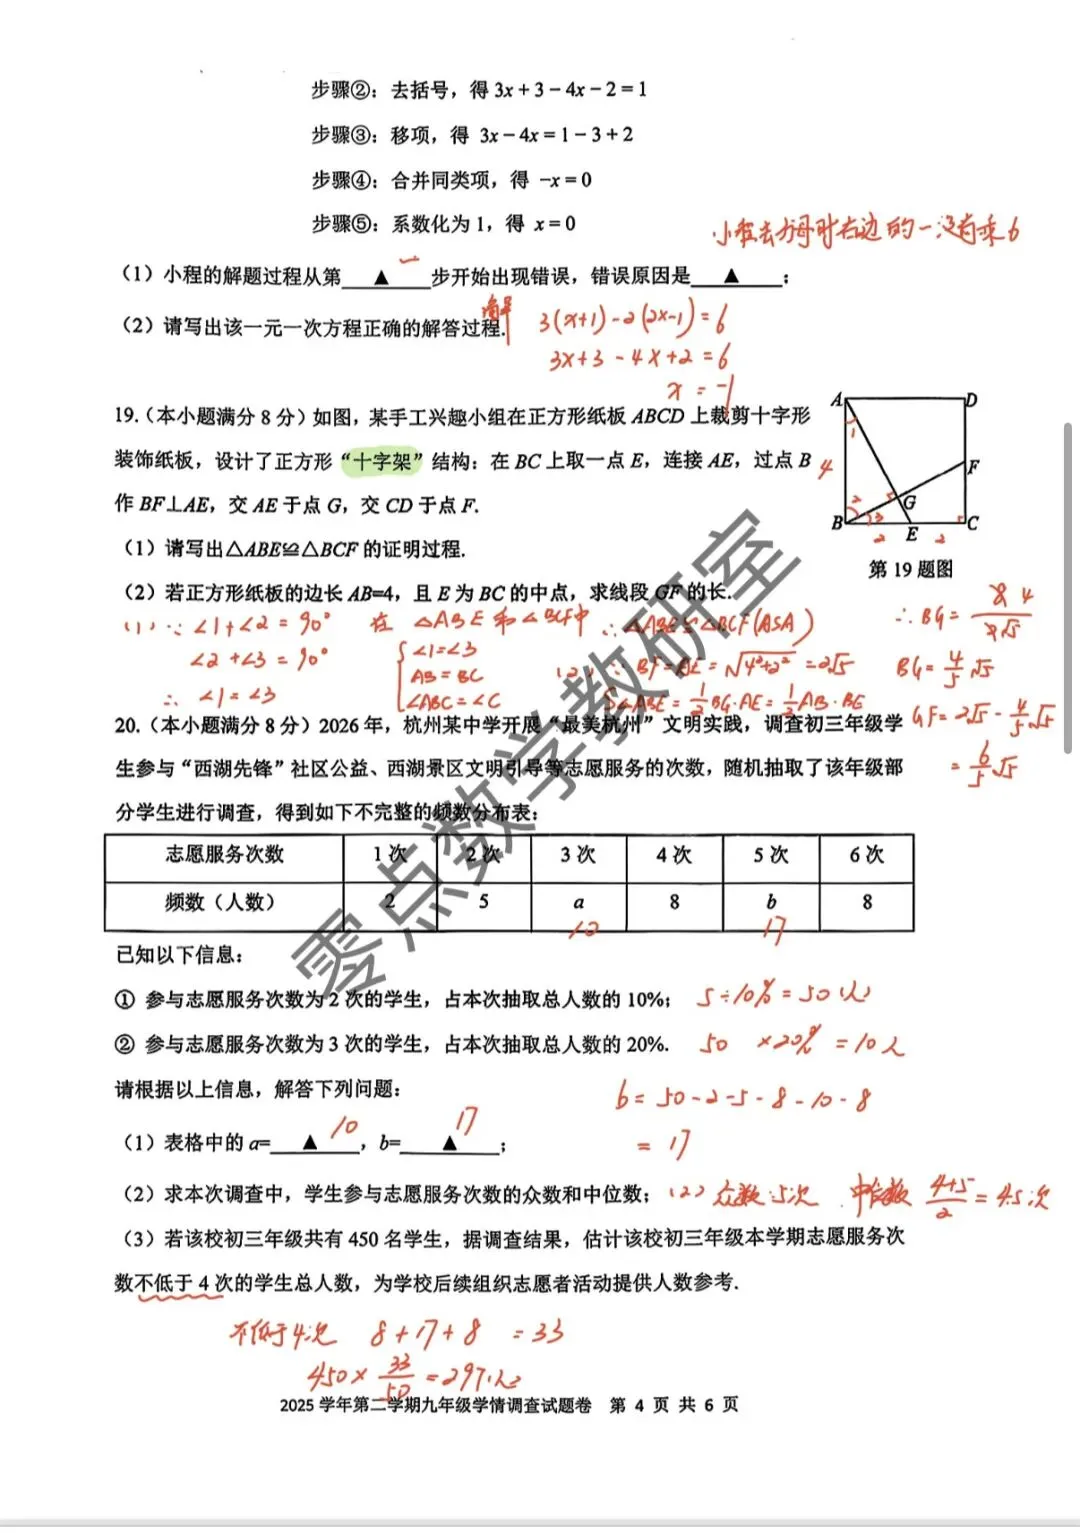 步骤②：去括号，得 3x + 3 − 4x − 2 = 1
步骤③：移项，得 3x − 4x = 1 − 3 + 2
步骤④：合并同类项，得 −x = 0
步骤⑤：系数化为 1，得 x = 0
小程去分母时右边的一没有乘6
（1）小程的解题过程从第 ▲ 步开始出现错误，错误原因是 ▲ ；
一
（2）请写出该一元一次方程正确的解答过程.
解 3(x+1)-2(2x-1)=6
3x+3-4x+2=6
x=-1
19.（本小题满分 8 分）如图，某手工兴趣小组在正方形纸板 ABCD 上裁剪十字形
装饰纸板，设计了正方形“十字架”结构：在 BC 上取一点 E，连接 AE，过点 B
作 BF⊥AE，交 AE 于点 G，交 CD 于点 F.
（1）请写出△ABE≌△BCF 的证明过程.
（2）若正方形纸板的边长 AB=4，且 E 为 BC 的中点，求线段 GF 的长.
A D
1
4
F
G
2
3
B E C
2 2
第 19 题图
(1) ∵ ∠1+∠2=90°
∠2+∠3=90°
∴ ∠1=∠3
在 △ABE 和 △BCF中
∠1=∠3
AB=BC
∠ABC=∠C
∴△ABE≌△BCF(ASA)
(2) ∵ BF=AE=√4²+2²=2√5
S△ABE=1/2BG·AE=1/2AB·BE
∴BG=
4
2√5
BG=4/5√5
GF=2√5-4/5√5
=6/5√5
20.（本小题满分 8 分）2026 年，杭州某中学开展“最美杭州”文明实践，调查初三年级学
生参与“西湖先锋”社区公益、西湖景区文明引导等志愿服务的次数，随机抽取了该年级部
分学生进行调查，得到如下不完整的频数分布表：
志愿服务次数 1 次 2 次 3 次 4 次 5 次 6 次
频数（人数） 2 5 a 8 b 8
10 17
已知以下信息：
① 参与志愿服务次数为 2 次的学生，占本次抽取总人数的 10%； 5÷10%=50(人)
② 参与志愿服务次数为 3 次的学生，占本次抽取总人数的 20%. 50×20%=10人
请根据以上信息，解答下列问题：
b=50-2-5-8-10-8
=17
（1）表格中的 a= ▲ ，b= ▲ ；
10 17
（2）求本次调查中，学生参与志愿服务次数的众数和中位数； (2) 众数:5次 中位数 4+5/2=4.5次
（3）若该校初三年级共有 450 名学生，据调查结果，估计该校初三年级本学期志愿服务次
数不低于 4 次的学生总人数，为学校后续组织志愿者活动提供人数参考.
不低于4次 8+17+8=33
450×33/50=297(人)
2025 学年第二学期九年级学情调查试题卷 第 4 页 共 6 页
零点数学教研室